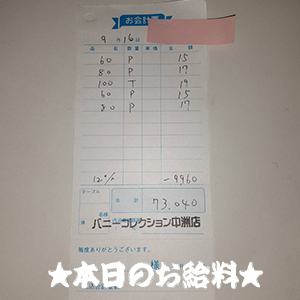 お会計
9月16日
品名 数量 単価 金額
60 P 15
80 P 17
100 T 19
60 P 15
80 P 17
12% -9960
テーブル
合計 73,040
バニーコレクション中洲店
毎度ありがとうございます。
様
★本日のお給料★